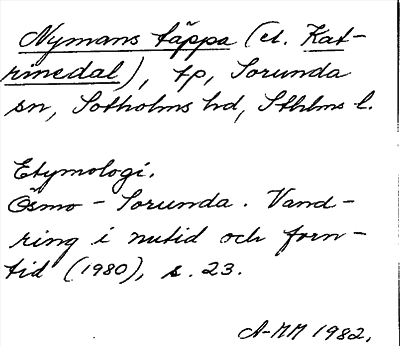 Nymans täppa (el. Kat-
rinedal), tp, Sorunda
sn, Sotholms hd, Sthlms l.
Etymologi.
Ösmo - Sorunda. Vand-
ring i nutid och forn-
tid (1980), s. 23.
A-MM 1982.